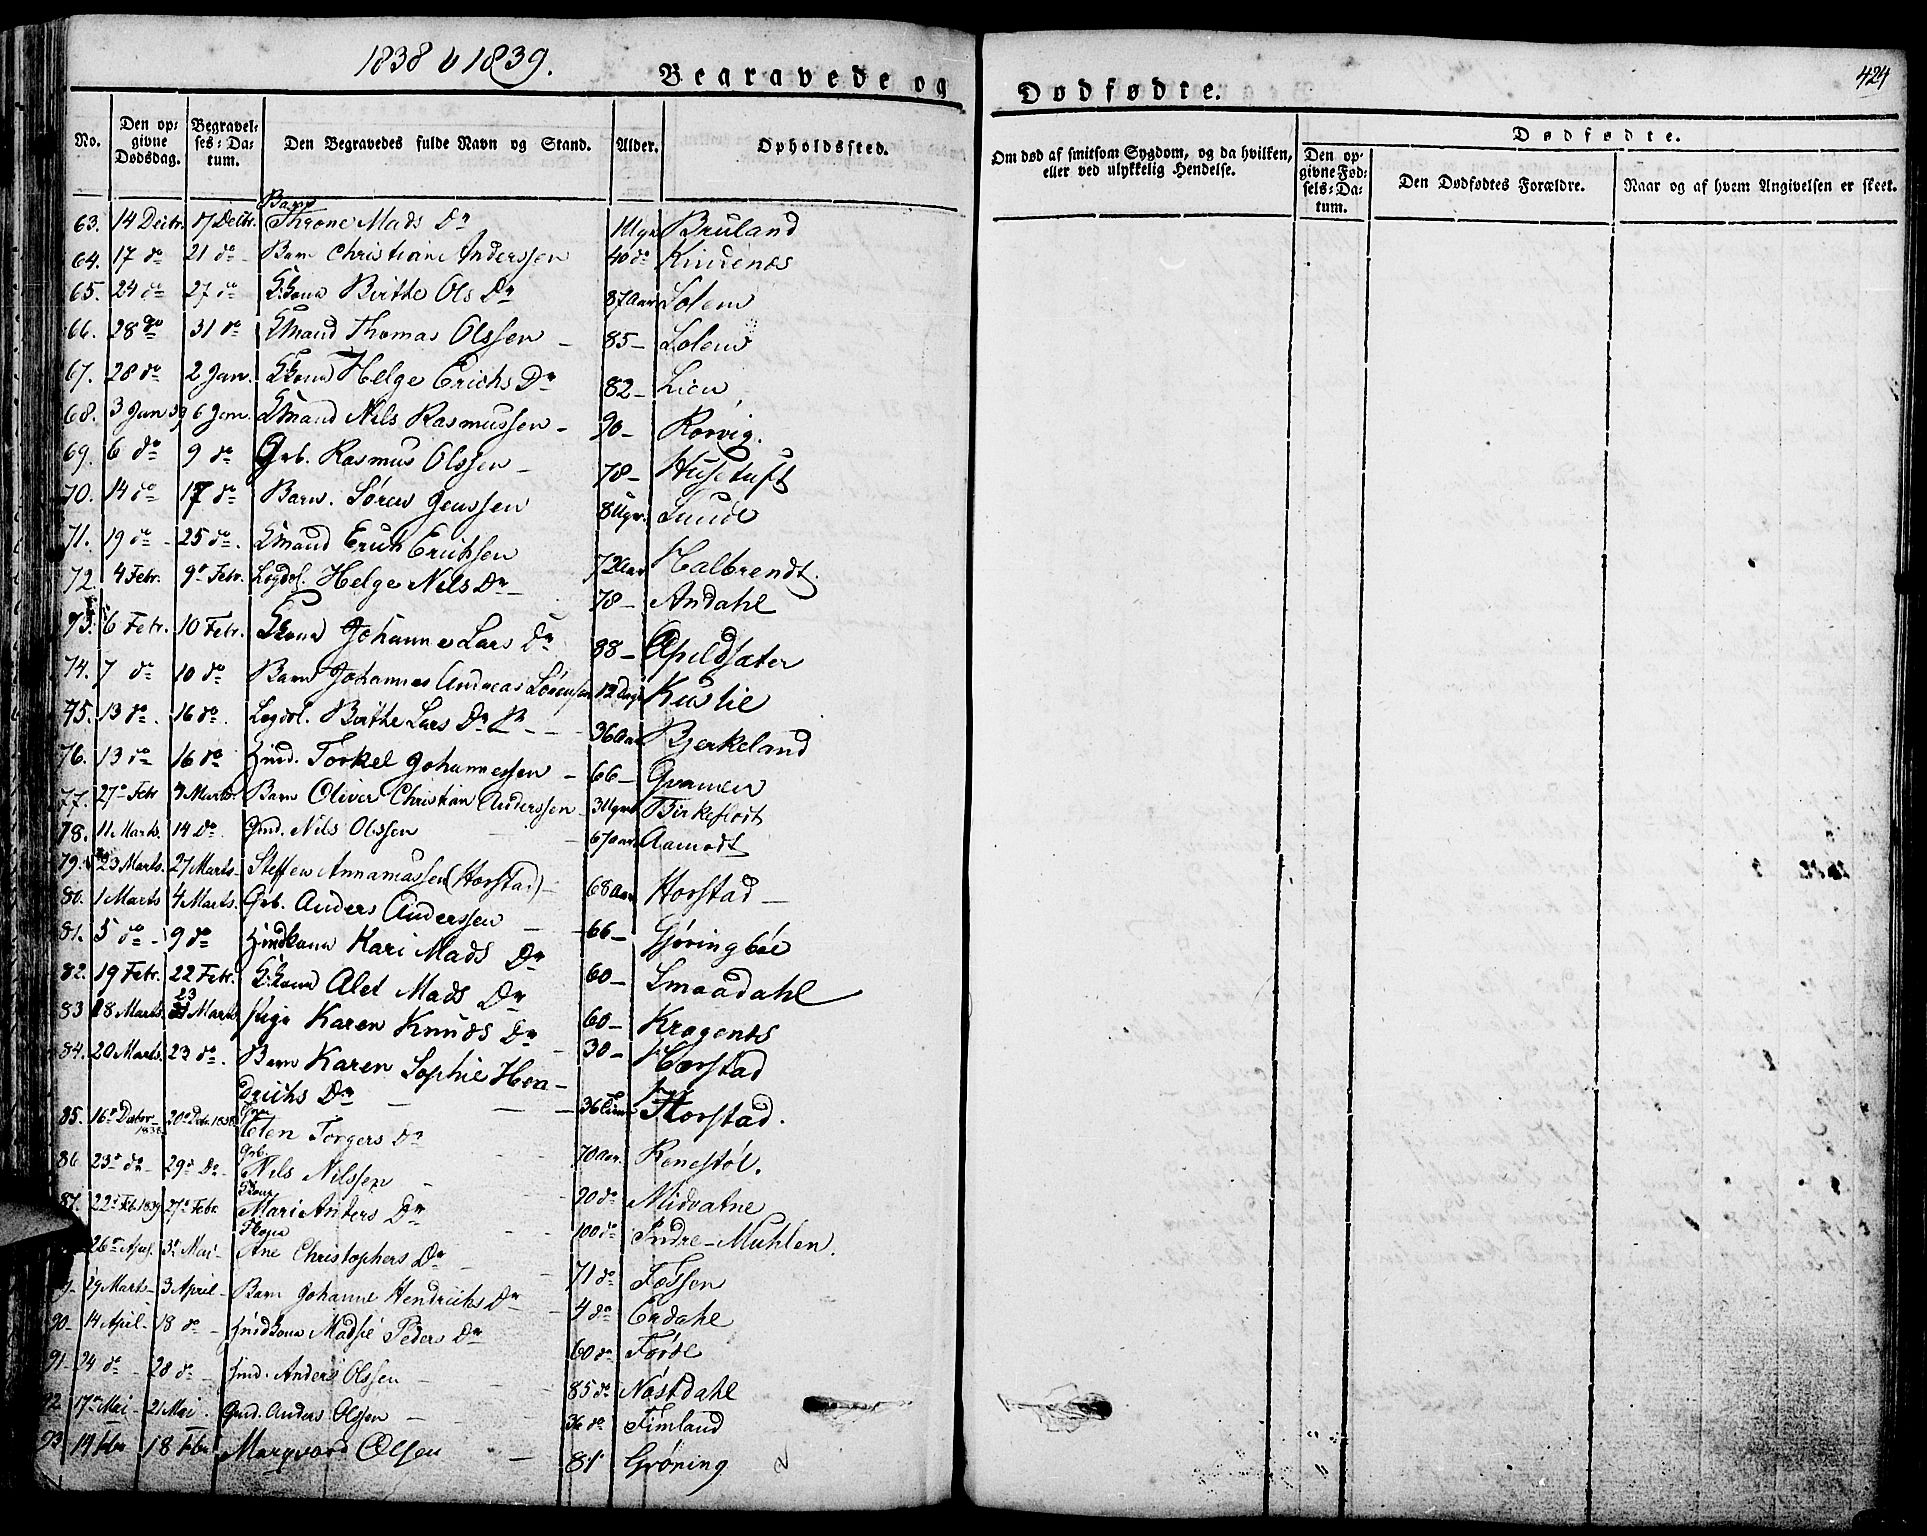 1838 & 1839.
Begravede og
Dødfødte.
424
No.
Den opgivne Dødsdag.
Begravelses-Datum.
Den Begravedes fulde Navn og Stand.
Alder.
Opholdssted.
Om død af smitsom Sygdom, og da hvilken, eller ved ulykkelig Hendelse.
Dødfødte.
Den opgivne Fødsels-Datum.
Den Dødfødtes Forældre.
Naar og af hvem Angivelsen er skeet.
63. 14 Decbr. 17 Decbr. Barn Throne Mads Dr Bruland
64. 17 do 21 do Barn Christiane Anderssen 40 do Kindenes
65. 24 do 27 do Gkona Birthe Ols Dr 87 Aar Solem
66. 28 do 31 do Gmand Thomas Olssen 85 - Solem
67. 28 do 2 Jan. Gkona Helge Erichs Dr 82 - Lien
68. 3 Jan 39 6 Jan. Gmand Nils Rasmussen - 90 - Rørvig.
69. 6 do 9 do Grb. Rasmus Olssen - 78 - Husetuft
70. 14 do 17 do Barn. Søren Jenssen 8 Ugr. Sunde
71. 19 do - 25 do. Gmand Erich Erichsen 72 Aar Halbrendt.
72. 4 Febr. 9 Febr. Lægdsl. Helge Nils Dr - 78 - Andahl
73. 6 Febr. 10 Febr. Gkona Johanne Lars Dr 88 - Apeldsæter
74. 7 do 10 do Barn Johannes Andreas Sørensen 12 Dage Kuslie
75. 13 do. 16 do. Lægdsl. Birthe Lars Dr 36 Aar Bjerkeland
76. 13 do 16 do Hmd. Torkel Johannessen - 66 - Gvamen
77. 27 Febr 4 Marts. Barn Oliver Christian Anderssen 3 Ugr Birkeflot
78. 11 Marts. 14 Do. Gmd. Nils Olssen 67 Aar Aamodt
79. 23 Marts. 27 Marts. Steffen Annaniassen (Horstad) - 68 Aar Horstad -
80. 1 Marts 4 Marts. Grb. Anders Anderssen - 66 - Gjøringbøe
81. 5 do - 9 do Hmdkona Kari Mads Dr 60 - Smaadahl
82. 19 Febr. 22 Febr. Gkona Alet Mads Dr 60 - Kragenes
83 18 Marts. 23 Marts Pige Karen Knuds Dr 30 - Horstad
84. 20 Marts. 23 do. Barn Karen Sophie Hendrichs Dr 36 Horstad.
85. 16 Decbr 1838 20 Decbr. 1838 Elen Torgers Dr 70 Aar. Renestøl.
86 23 do - 29 Do. Grb. Nils Nilssen - 90 do Midvatne
87. 22 Feb. 1839 27 Febr Gkona Mari Anders Dr 100 do Indre-Muhlen.
26 April. 3 Mai - Ane Christophers Dr 71 do Fossen
29 Marts - 3 April - Barn Johanne Hendrichs Dr 4 do Erdahl
90 - 14 April - 18 do - Hmdkona Madsie Peders Dr 60 do Førde
91 - 24 do - 28 do - Hmd. Anders Olssen - 85 do Nøstdahl
92 17 Mai - 21 Mai. Gmd. Anders Olssen - 36 do Fimland
93 14 Fbr 18 Fbr Margvard Olsen - 81 Grøning